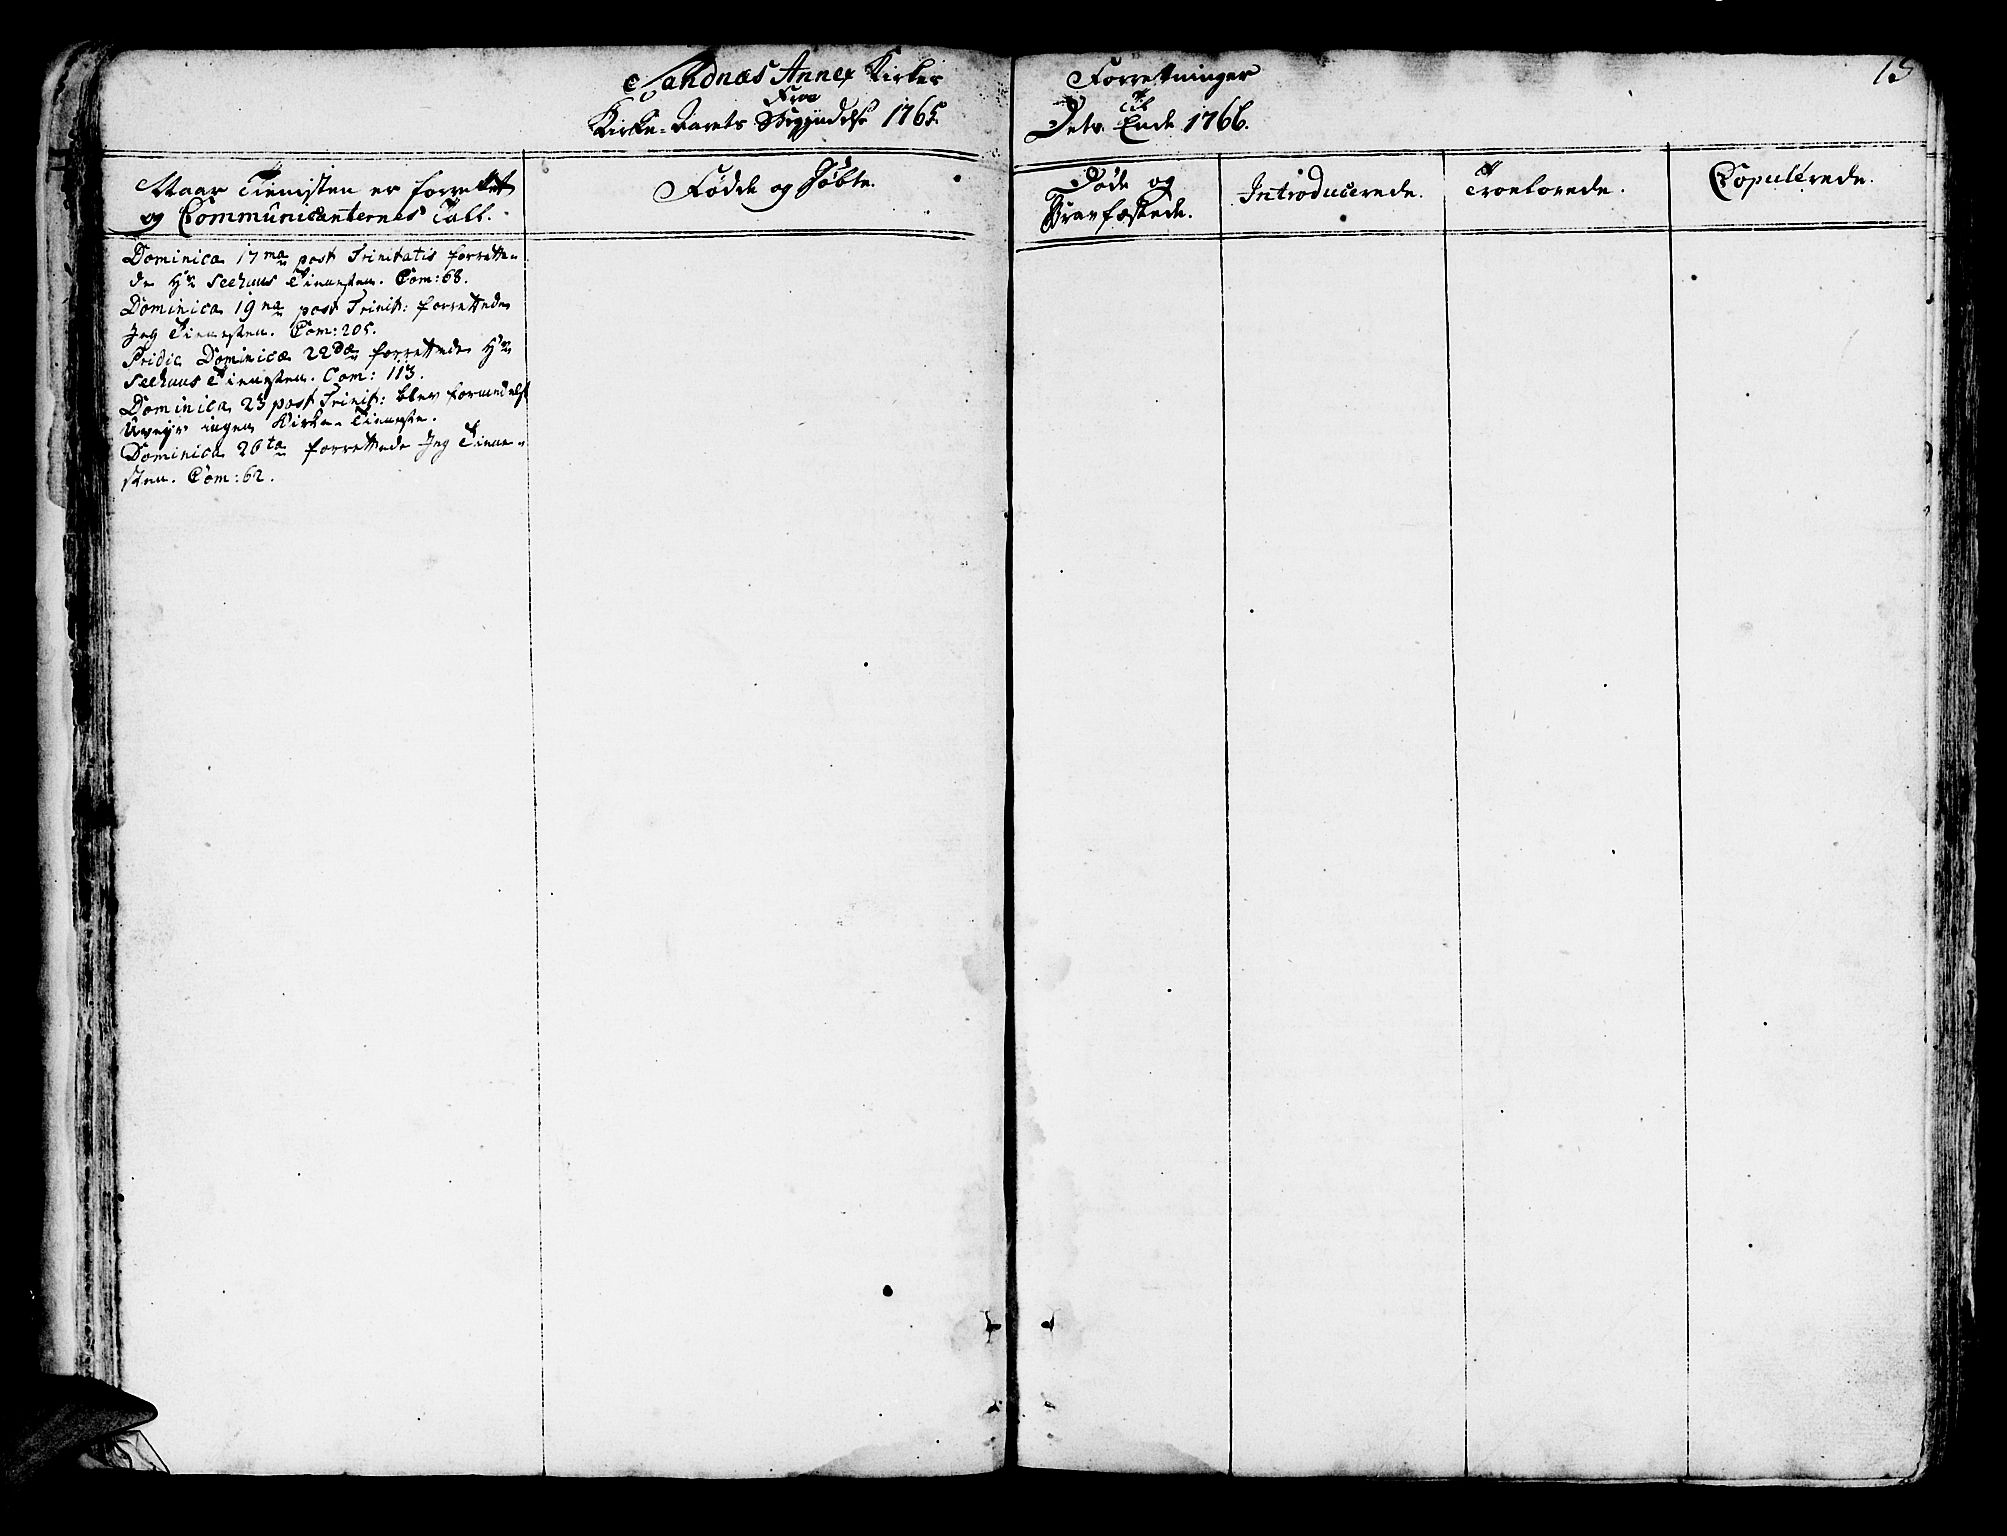 Sandnæs Annex Kirkes Forretninger
Fra
Kirke-Aarets Begyndelse 1765.
Til
Dets Ende 1766.
Naar Tienisten er forrettet
og Communicanternes Tall.
Fødde og Døbte.
Døde og
Gravfæstede.
Introducerede.
Troelovede.
Copulerede.
Dominica 17ma post Trinitatis forrette-
de Hr Seehuus Tienesten. Com: 68.
Dominica 19na post Trinit: forrettede
Jeg Tienesten. Com: 205.
Pridie Dominicæ 22dæ forrettede Hr
Seehuus Tienesten. Com: 113.
Dominica 23 post Trinit: blev formedelst
Uveyr ingen Kirke-Tieneste.
Dominica 26ta forrettede Jeg Tiene-
sten. Com: 62.